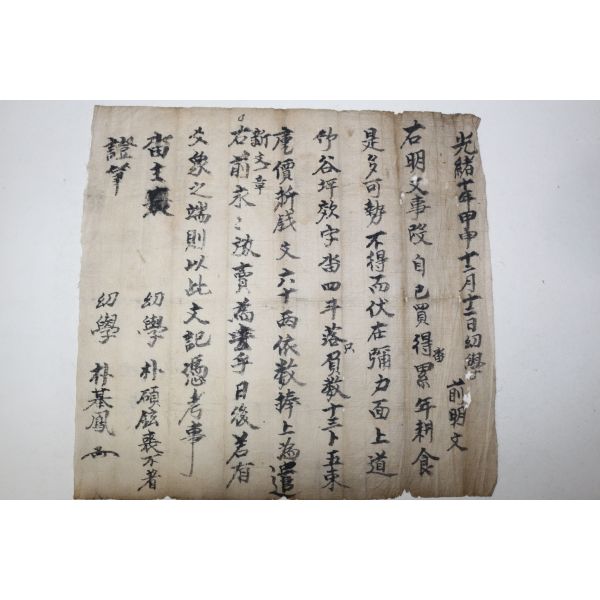 光緒十年甲申十二月十二日幼學 前明文
右明文事段自己買得畓累年耕食
是多可勢不得而伏在彌力面上道
仲谷坪效字畓四斗落只負數十三卜五束
庫價折錢文六十兩依數捧上為遣
右前永永放賣為乎日後若有
新文一章
爻象之端則以此文記憑考事
畓主 幼學 朴碩鉉喪不著
證筆 幼學 朴基鳳